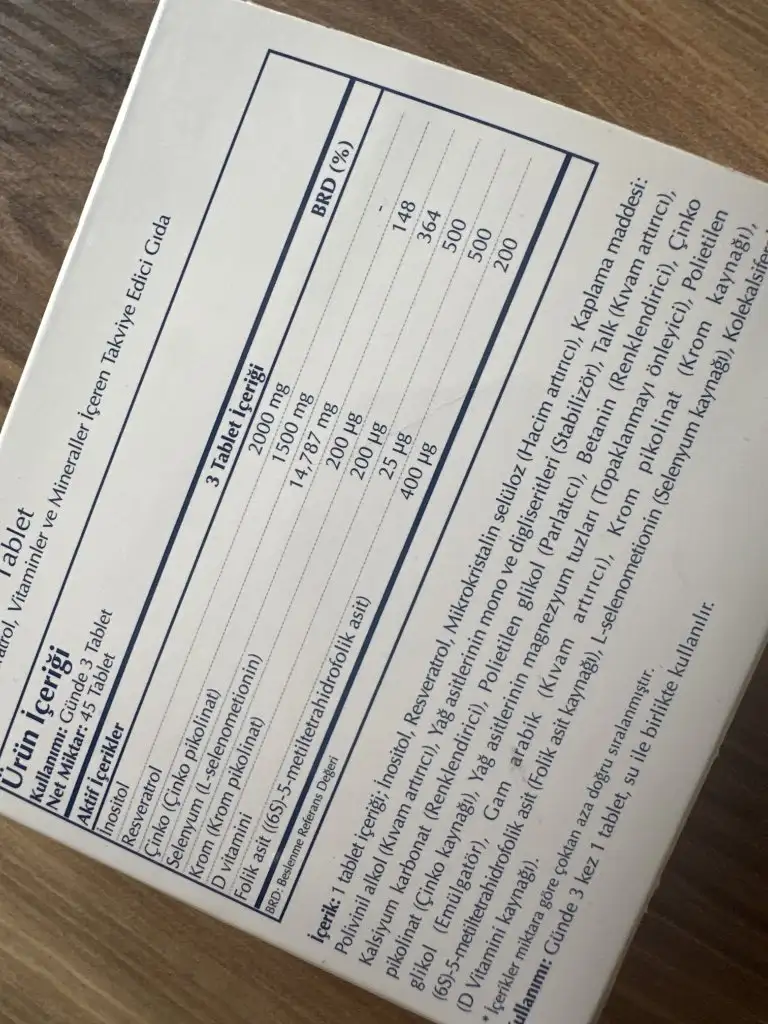 Tablet
Vitaminler ve Mineraller İçeren Takviye Edici Gıda
Ürün İçeriği
Kullanımı: Günde 3 Tablet
Net Miktar: 45 Tablet
Aktif İçerikler 3 Tablet İçeriği BRD (%)
İnositol 2000 mg
Resveratrol 1500 mg -
Çinko (Çinko pikolinat) 14,787 mg 148
Selenyum (L-selenometionin) 200 µg 364
Krom (Krom pikolinat) 200 µg 500
D vitamini 25 µg 500
Folik asit ((6S)-5-metiltetrahidrofolik asit) 400 µg 200
BRD: Beslenme Referans Değeri
İçerik: 1 tablet içeriği; İnositol, Resveratrol, Mikrokristalin selüloz (Hacim artırıcı), Kaplama maddesi:
Polivinil alkol (Kıvam artırıcı), Yağ asitlerinin mono ve digliseritleri (Stabilizör), Talk (Kıvam artırıcı),
Kalsiyum karbonat (Renklendirici), Polietilen glikol (Parlatıcı), Betanin (Renklendirici), Çinko
pikolinat (Çinko kaynağı), Yağ asitlerinin magnezyum tuzları (Topaklanmayı önleyici), Polietilen
glikol (Emülgatör), Gam arabik (Kıvam artırıcı), Krom pikolinat (Krom kaynağı),
(6S)-5-metiltetrahidrofolik asit (Folik asit kaynağı), L-selenometionin (Selenyum kaynağı),
(D Vitamini kaynağı).
* İçerikler miktara göre çoktan aza doğru sıralanmıştır.
Kullanımı: Günde 3 kez 1 tablet, su ile birlikte kullanılır.